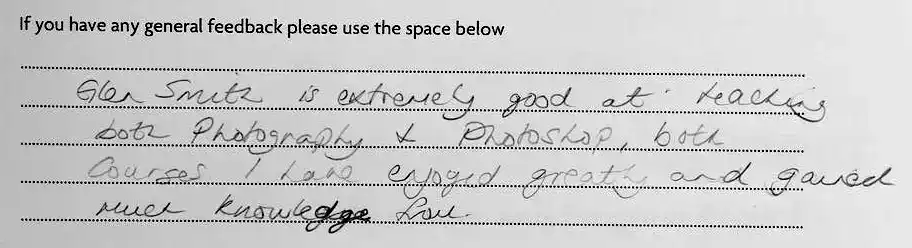 If you have any general feedback please use the space below
Glen Smith is extremely good at teaching
both Photography & Photoshop, both
Courses I have enjoyed greatly and gained
much knowledge from.